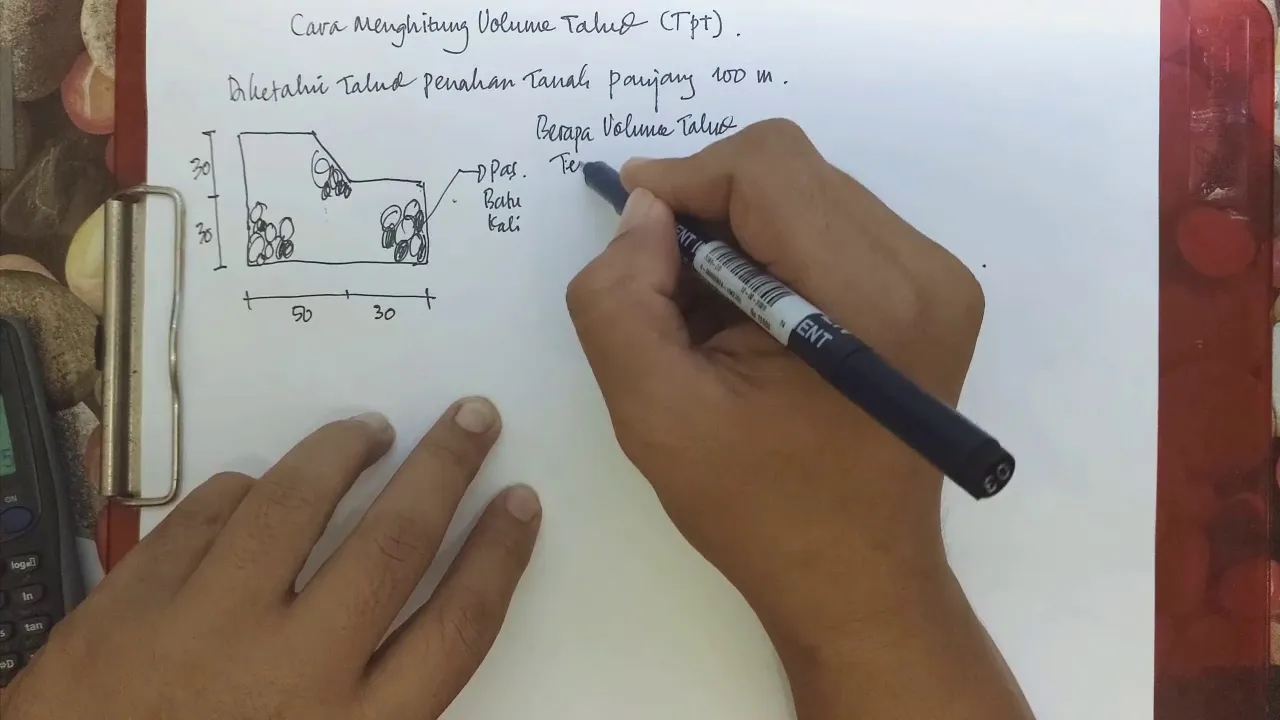 Cara Menghitung Volume Talud (Tpt).
Diketahui Talud Penahan Tanah panjang 100 m.
Berapa Volume Talud
Te
30
30
Pas.
Batu
Kali
50
30
ENT
ON
log
ln
tan